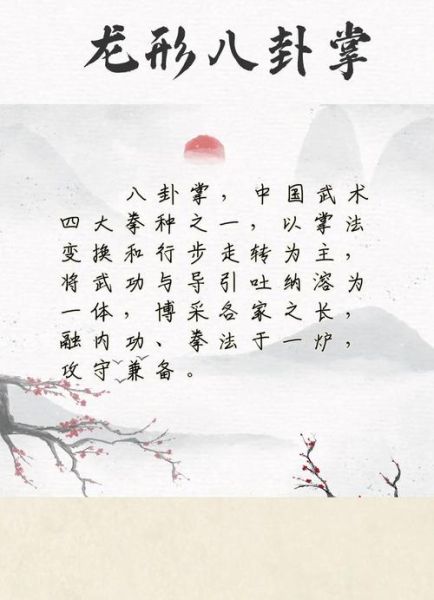 龙形八卦掌
八卦掌，中国武术
四大拳种之一，以掌法
变换和行步走转为主，
将武功与导引吐纳溶为
一体，博采各家之长，
融内功、拳法于一炉，
攻守兼备。